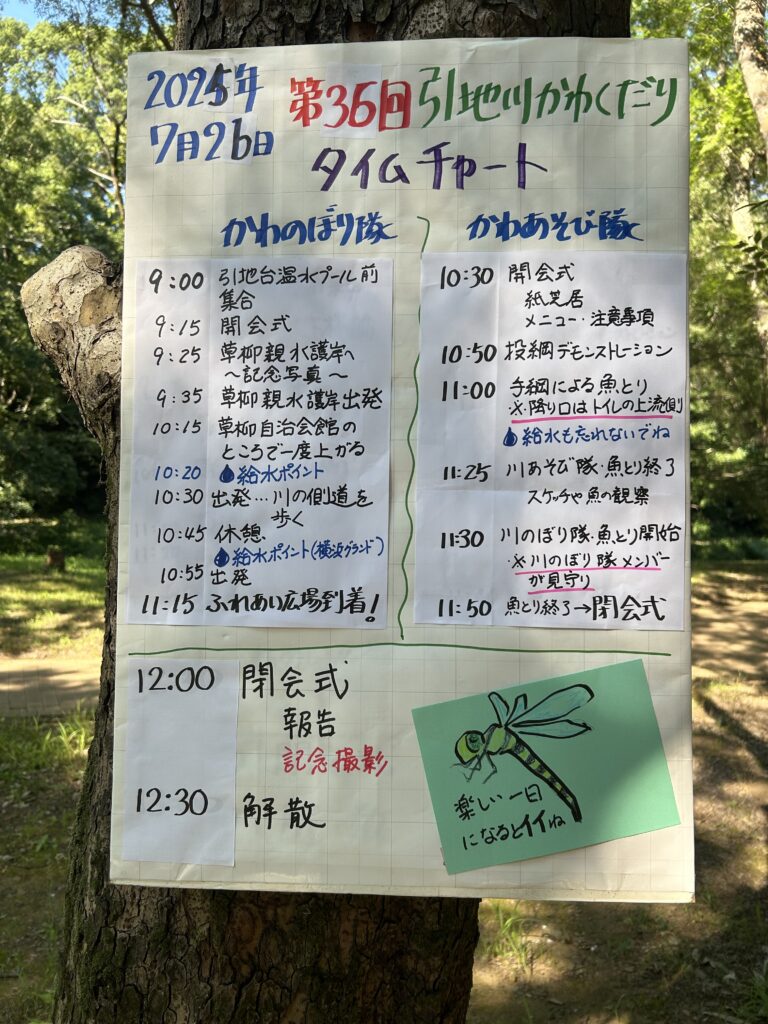 2025年
7月26日
第36回引地川かわくだり
タイムチャート
かわのぼり隊
9:00 引地台温水プール前
集合
9:15 開会式
9:25 草柳親水護岸へ
～記念写真～
9:35 草柳親水護岸出発
10:15 草柳自治会館の
ところで一度上がる
10:20 給水ポイント
10:30 出発…川の側道を
歩く
10:45 休憩
給水ポイント(横浜グランド)
10:55 出発
11:15 ふれあい広場到着!
かわあそび隊
10:30 開会式
紙芝居
メニュー・注意事項
10:50 投網デモンストレーション
11:00 手網による魚とり
※降り口はトイレの上流側
給水も忘れないでね
11:25 川あそび隊・魚とり終了
スケッチや魚の観察
11:30 川のぼり隊・魚とり開始
※川のぼり隊メンバー
が見守り
11:50 魚とり終了→閉会式
12:00 閉会式
報告
記念撮影
12:30 解散
楽しい一日
になるとイイね